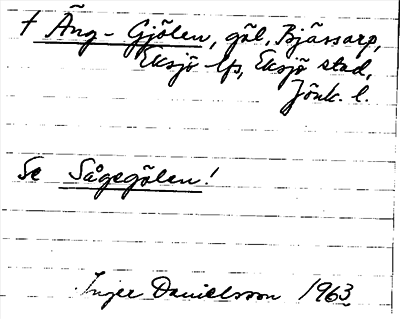 † Äng-Gjölen, göl, Bjässarp,
Eksjö lfs, Eksjö stad,
Jönk. l.
Se Sågegölen!
Inger Danielsson 1963